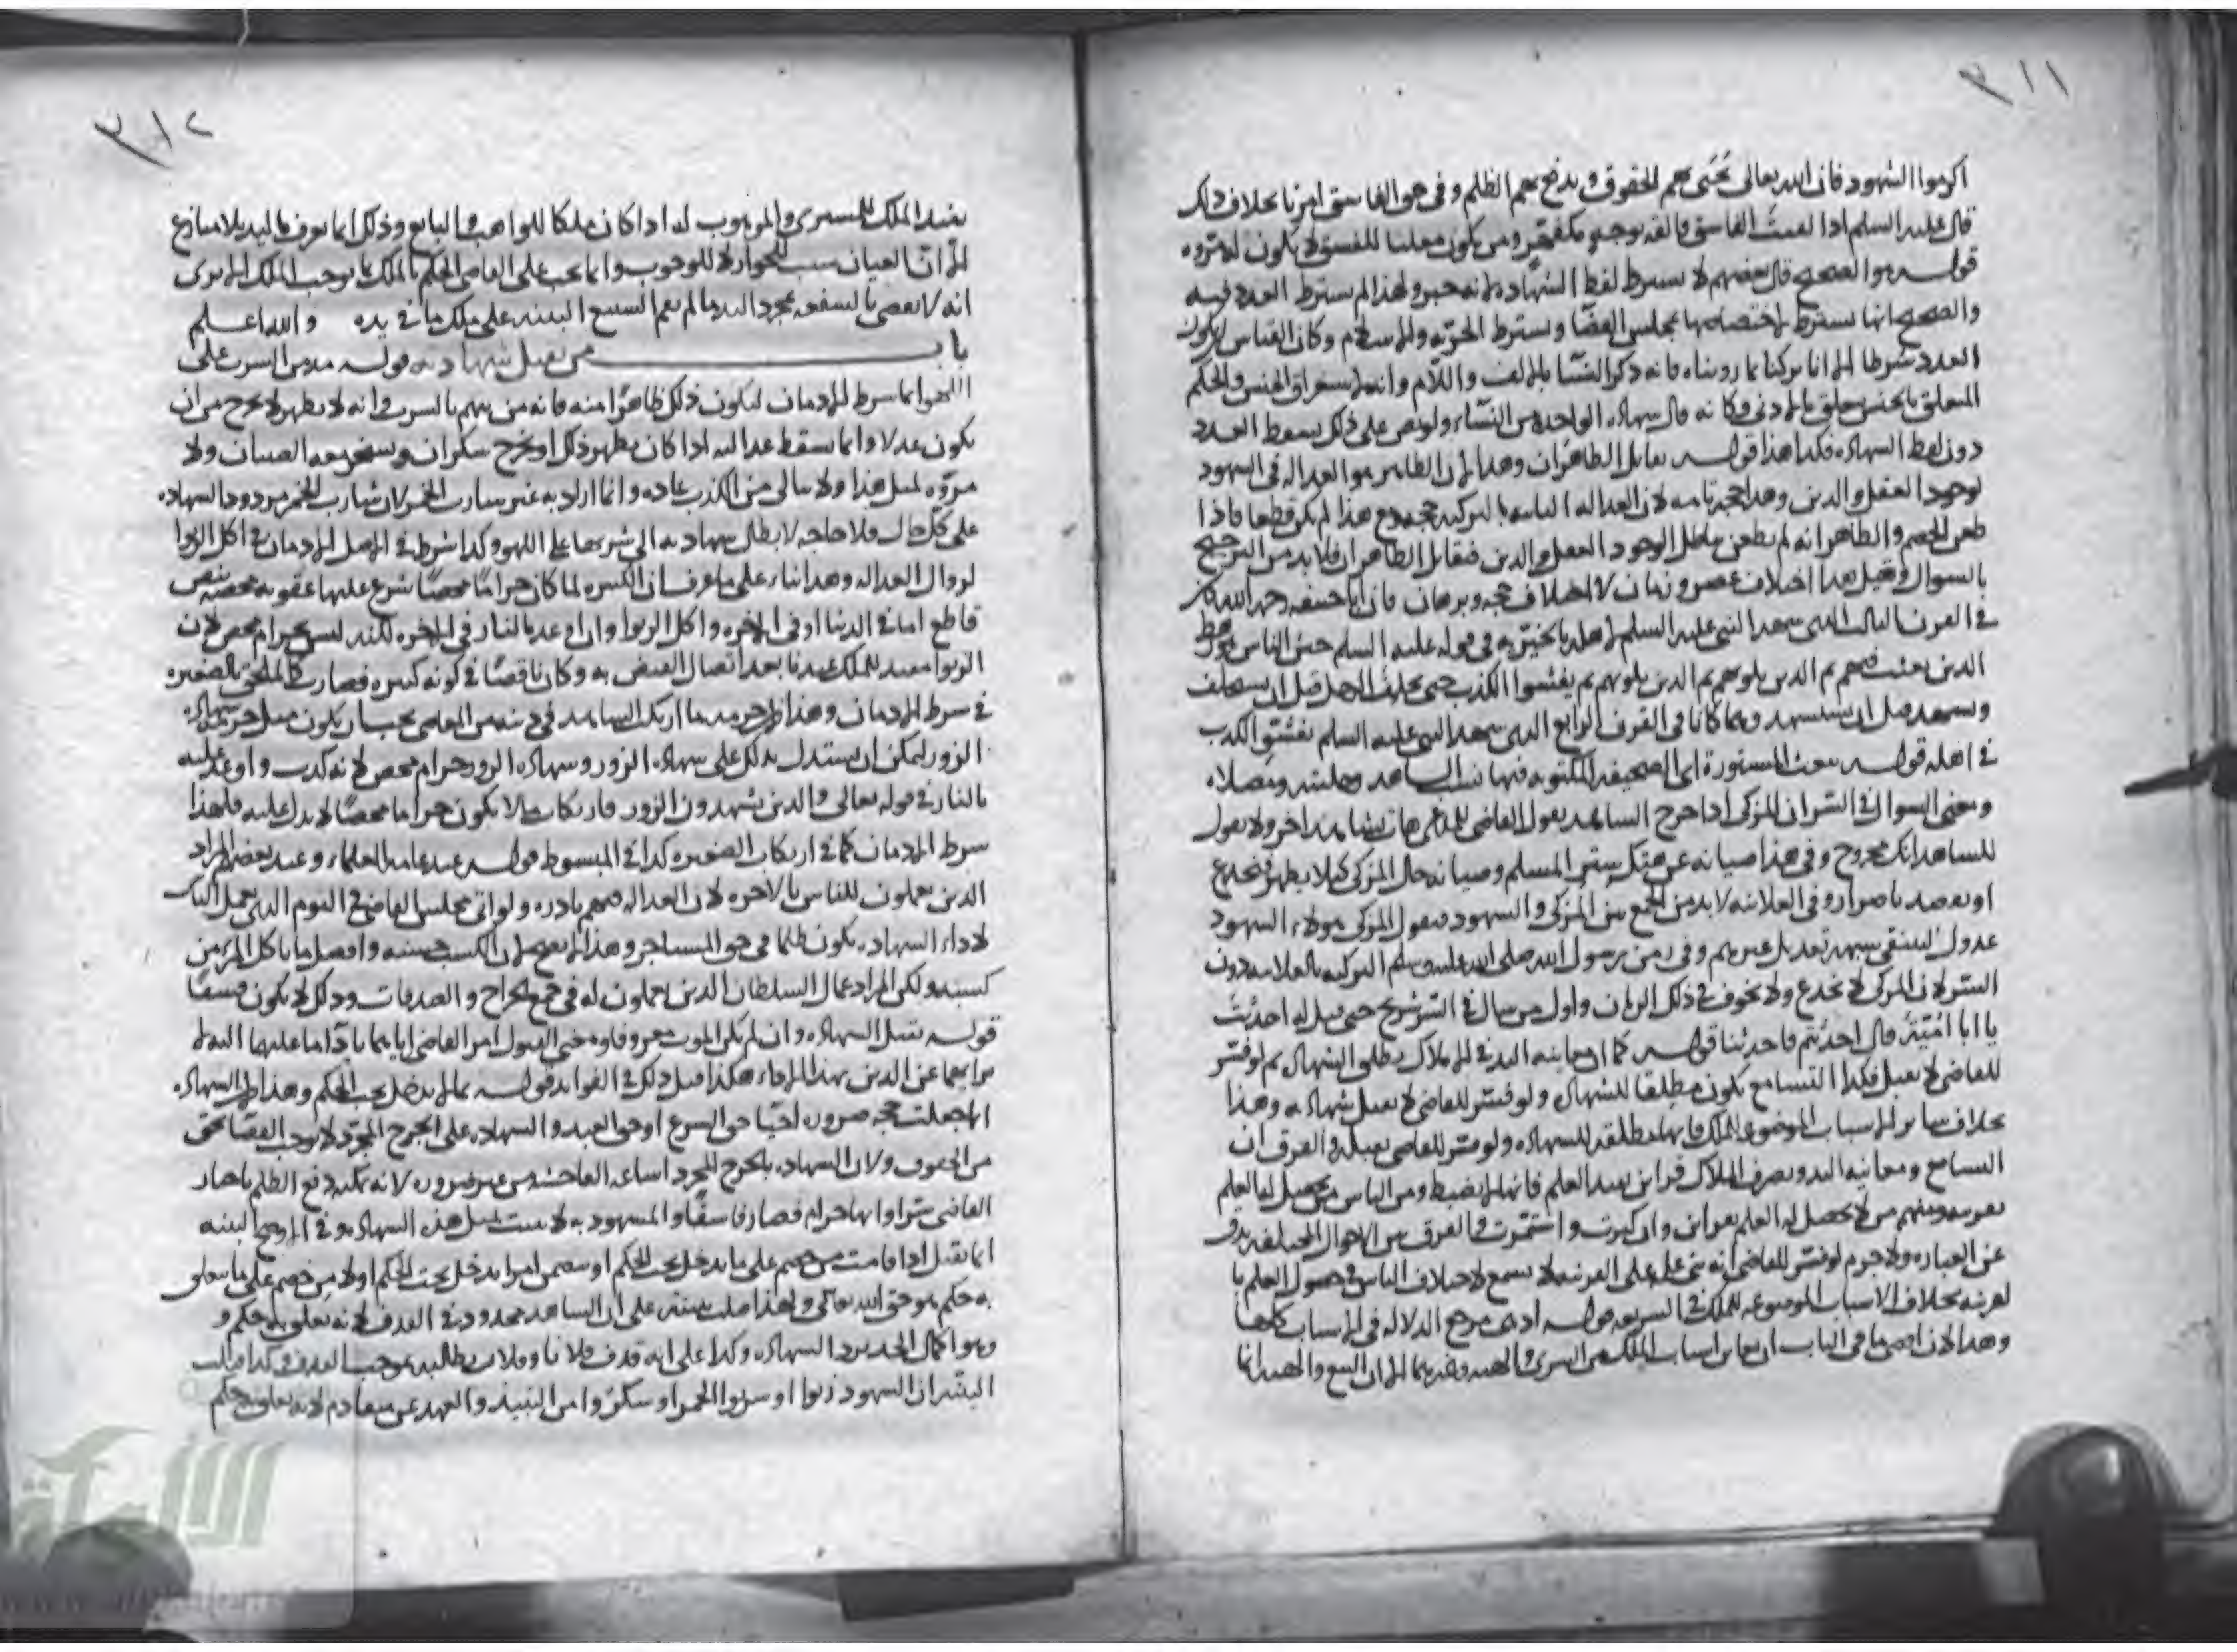 ٣١١
اكرموا الشهود فان الله تعالى يحيى بهم الحقوق ويدفع بهم الظلم وفى حق الفاسق امرنا بخلاف ذلك
قال عليه السلم اذا لقيت الفاسق فالقه بوجه مكفهر ومن يكون معلنا للفسق لا يكون له مروه
قوله هو الصحيح قال بعضهم لا يشترط لفظ الشهاده لانه خبر ولهذا لم يشترط العدد فيه
والصحيح انها تشترط لاختصاصها بمجلس القضا ويشترط الحريه والاسلام وكان القياس ان يكون
العدد شرطا الا انا تركنا بما روينا فانه ذكر النسا بالالف واللام وانه لاستغراق الجنس والحكم
المتعلق بالجنس يتعلق بالادنى وكانه قال شهاده الواحده من النساء ولو نص على ذلك يسقط العدد
دون لفظ الشهاده فكذا هذا قوله تقابل الظاهران وهذا لان الظاهر هو العداله فى الشهود
لوجود العقل والدين وهذا حجه تامه لان العداله الثابته بالتزكيه حجه مع هذا لم يكن قطعا فاذا
طعن الخصم والظاهر انه لم يطعن باطلا لوجود العقل والدين فتقابل الظاهران فلا بد من الترجيح
بالسوال وقيل هذا اختلاف عصر وزمان لا اختلاف حجه وبرهان فان ابا حنيفه رحمه الله كان
فى القرن الثالث الذى شهد النبى عليه السلم لاهله بالخيريه فى قوله عليه السلم خير الناس رهط
الذين بعثت فيهم ثم الذين يلونهم ثم الذين يلونهم ثم يفشوا الكذب حتى يحلف الرجل قبل ان يستحلف
ويشهد قبل ان يستشهد وهما كانا فى القرن الرابع الذى شهد النبى عليه السلم بفشو الكذب
فى اهله قوله يبعث المستورة اى الصحيفه المكتوبه فيها نسب الشاهد وحليته ومصلاه
ومعنى السوال فى السر ان المزكى اذا جرح الشاهد يقول القاضى للمدعى هات شاهدا اخر ولا يقول
للشاهد انك مجروح وفى هذا صيانه عن هتك ستر المسلم وصيانه حال المزكى كيلا يظهر فيخدع
او يقصد باضرار وفى العلانيه لا بد من الجمع بين المزكى والشهود فيقول المزكى هولاء الشهود
عدول لينتفى شبهه تعديل غيرهم وفى زمن رسول الله صلى الله عليه وسلم التزكيه بالعلانيه دون
السر لان المزكى لا يخدع ولا يخوف فى ذلك الزمان واول من سال فى السر شريح حتى قيل له احدثت
يا ابا اميه قال احدثتم فاحدثنا قوله كما ان معاينه اليد فى الاملاك يطلق الشهاده ثم لو فسر
للقاضى لا يقبل فكذا التسامع يكون مطلقا للشهاده ولو فسر للقاضى لا يقبل شهادته وهذا
بخلاف سائر الاسباب الموضوعه للملك فانها مطلقه للشهاده ولو فسر للقاضى يقبله والفرق ان
التسامع ومعاينه اليد وتصرف الملاك قراين تفيد العلم فانها لا ينضبط ومن الناس من يحصل له العلم
بقرينه ومنهم من لا يحصل له العلم بقراين وان كبرت واستمرت والفرق بين الاحوال المختلفه يدق
عن العباره ولا جرم لو فسر للقاضى انه بنى علمه على القرينه لا يسمع لاختلاف الناس فى حصول العلم با
لقرينه بخلاف الاسباب الموضوعه للملك فى الشريعه قوله اذ هى مرجع الدلاله فى الاسباب كلها
وهذا لان اقصى ما فى الباب ان يعاين اسباب الملك من الشرى والهبه وغيرهما الا ان البيع والهبه انما
٣١٢
يفيد الملك للمشترى والموهوب له اذا كان ملكا للواهب والبايع وذلك انما يعرف باليد بلا منازع
الا ان العيان سبب للجواز لا للوجوب وانما يجب على القاضى الحكم بالملك بما يوجب الملك الا يرى
انه لا يقضى بالشفعه بمجرد اليد ما لم يقم الشفيع البينه على ملك ما فى يده والله اعلم
باب من يقبل شهادته قوله مدمن الشرب على
اللهو انما شرط الادمان ليكون ذلك ظاهرا منه فانه من يتهم بالشرب وانه لا يظهر لا يخرج من ان
يكون عدلا وانما يسقط عدالته اذا كان يظهر ذلك او يخرج سكران ويسخر معه الصبيان ولا
مروه لمثل هذا ولا يبالى من الكذب عاده وانما اراد به غير شارب الخمر لان شارب الخمر مردود الشهاده
على كل حال فلا حاجه لابطال شهادته الى شربها على اللهو وكذا شرط فى الاصل الادمان فى اكل الربوا
لزوال العداله وهذا بناء على ما عرف ان الكبيره لما كان حراما محضا شرع عليها عقوبه محضه بنص
قاطع اما فى الدنيا او فى الاخره واكل الربوا وان اوعد بالنار فى الاخره لكنه ليس بحرام محض لان
الربوا مفيد للملك عندنا بعد اتصال القبض به وكان ناقصا فى كونه كبيره فصار كالملحق بالصغيره
فى شرط الادمان وهذا لان حرمه ما ارتكب الشاهد فى دينه من المعاصى يجب ان يكون مثل حرمه شهاده
الزور ليمكن ان يستدل بذلك على شهاده الزور وشهاده الزور حرام محض لانه كذب واوعد عليه
بالنار فى قوله تعالى والذين يشهدون الزور فارتكاب ما لا يكون حراما محضا لا يدل عليه فلهذا
شرط الادمان كما فى ارتكاب الصغيره كذا فى المبسوط قوله عند عامه العلماء وعند بعضهم المراد
الذين يعملون للناس بالاجره لان العداله فيهم نادره ولو اتى مجلس القاضى فى اليوم الذى يعمل للناس
لاداء الشهاده يكون ظلما فى حق المستاجر وهذا لا يصح لان الكسب حسنه وافضل ما ياكل المرء من
كسبه ولكن المراد عمال السلطان الذين يعملون له فى جمع الخراج والصدقات وذلك لا يكون فسقا
قوله تقبل الشهاده وان لم يكن الموت معروفا ومعنى القبول امر القاضى اياهما باداء ما عليهما البدل
برايهما عن الدين بهذا الاداء هكذا قيل ذلك فى الفوايد قوله مما لا يدخل تحت الحكم وهذا لان الشهاده
انما جعلت حجه ضروره احيا حق الشرع او حق العبد والشهاده على الجرح المجرد لا يوجب القضا بحق
من الحقوق ولان الشهاده بالجرح المجرد اشاعه الفاحشه من غير ضروره لانه يمكنه دفع الظلم باخبار
القاضى سرا وانها حرام فصار فاسقا والمشهود به لا يثبت بمثل هذه الشهاده وفى الاوضح البينه
انما تقبل اذا قامت من خصم على ما يدخل تحت الحكم او تضمن امرا يدخل تحت الحكم او لا من خصم على ما يتعلق
به حكم هو حق الله تعالى ولهذا قبلت بينته على ان الشاهد محدود فى القذف لانه تعلق به حكم و
هو اكمال الحد برد الشهاده وكذا على انه قذف فلانا وفلان يطالبه بموجب القذف وكذا قالت
البينه ان الشهود زنوا او شربوا الخمر او سكروا من النبيذ والعهد غير متقادم لانه تعلق به حكم